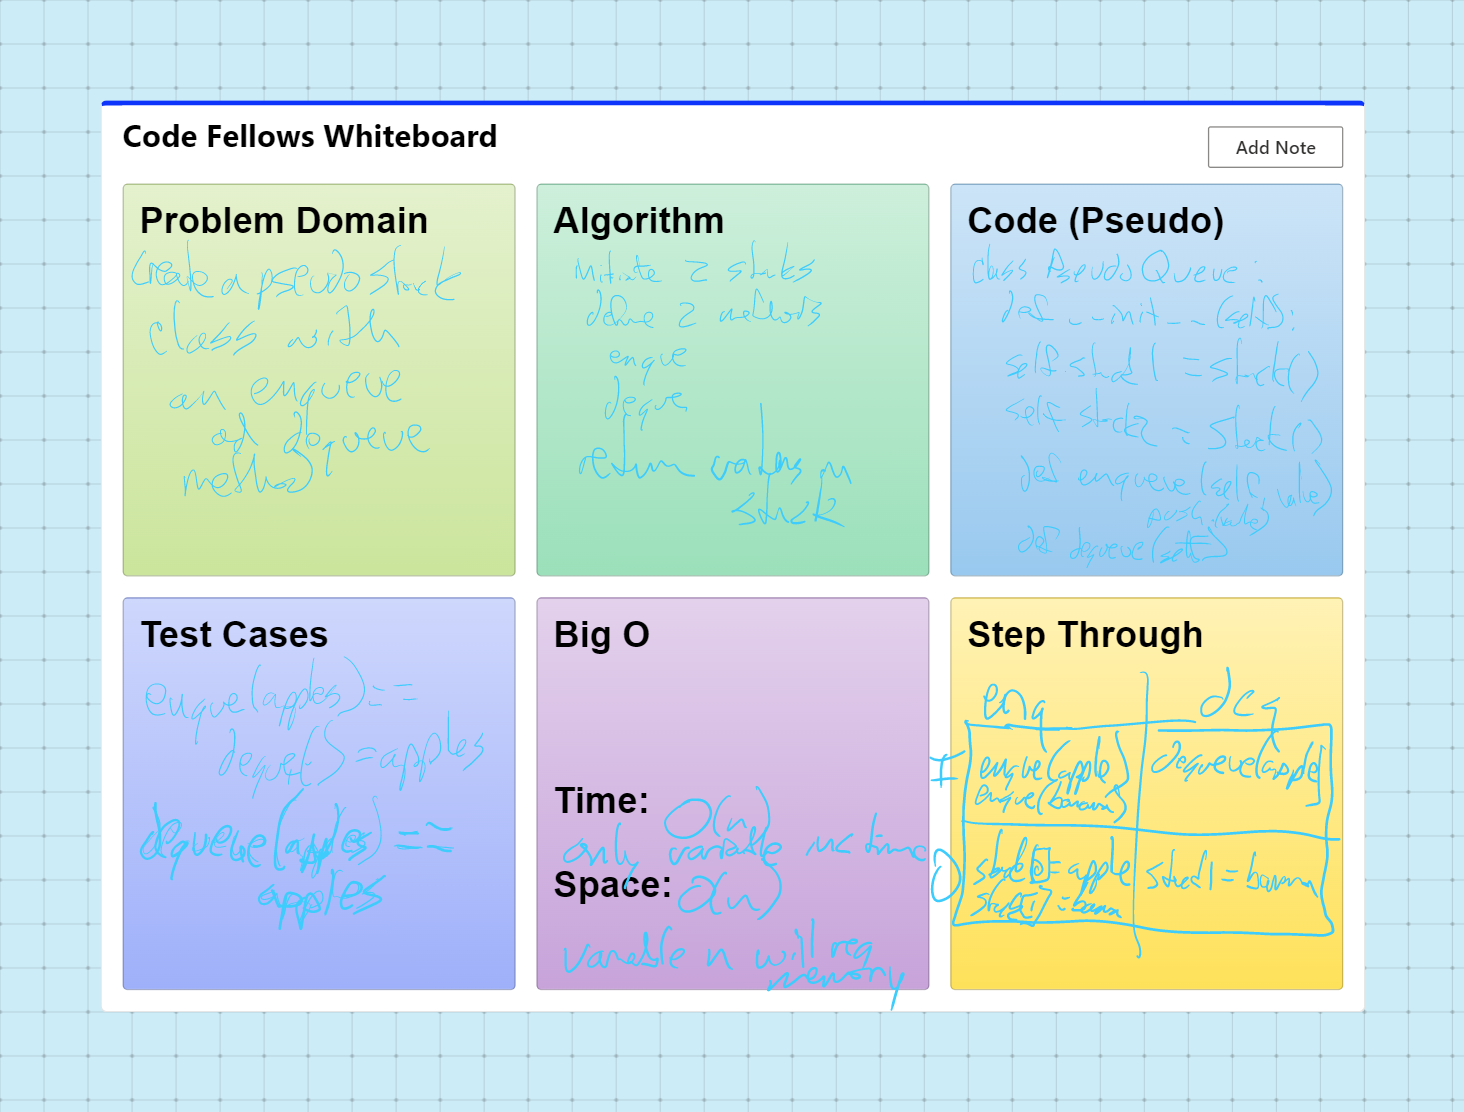 Code Fellows Whiteboard
Add Note
Problem Domain
Create a pseudo stack
class with
an enqueue
ad dequeue
method
Algorithm
initiate 2 stacks
define 2 methods
enque
deque
return values in
stack
Code (Pseudo)
class PseudoQueue:
def __init__(self):
self stack1 = stack()
self stack2 = Stack()
def enqueue(self, value)
push.(value)
def dequeue(self)
Test Cases
enque(apples)==
deque()=apples
dequeue(apples)==
apples
Big O
Time: O(n)
only variable inc time
Space: O(n)
variable n will req
memory
Step Through
enq deq
I enque(apple) dequeue(apple)
enque(banana)
O stack[0]=apple stack1=banana
stack[1]=banana